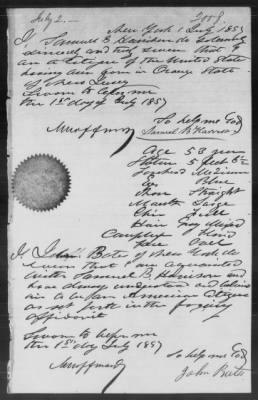 July 2
2008.
New York 1 July 1857
I, Samuel B Harrison do solemnly
sincerely and truly swear that I
am a Citizen of the United States
having been born in Orange State
of New Jersey
Sworn to before me
the 1st day of July 1857
So help me God
Samuel B Harrison
Age 53 years
Stature 5 feet
Forehead Medium
Eyes Blue
Nose Straight
Mouth Large
Chin
Hair Gray Mixed
Complex
Face Oval
I, John Bates of New York do
swear that I am acquainted
with Samuel B Harrison and
know
him to be an American Citizen
as set forth in the foregoing
Affidavit
Sworn to before me
the 1st day July 1857
So help me God
John Bates